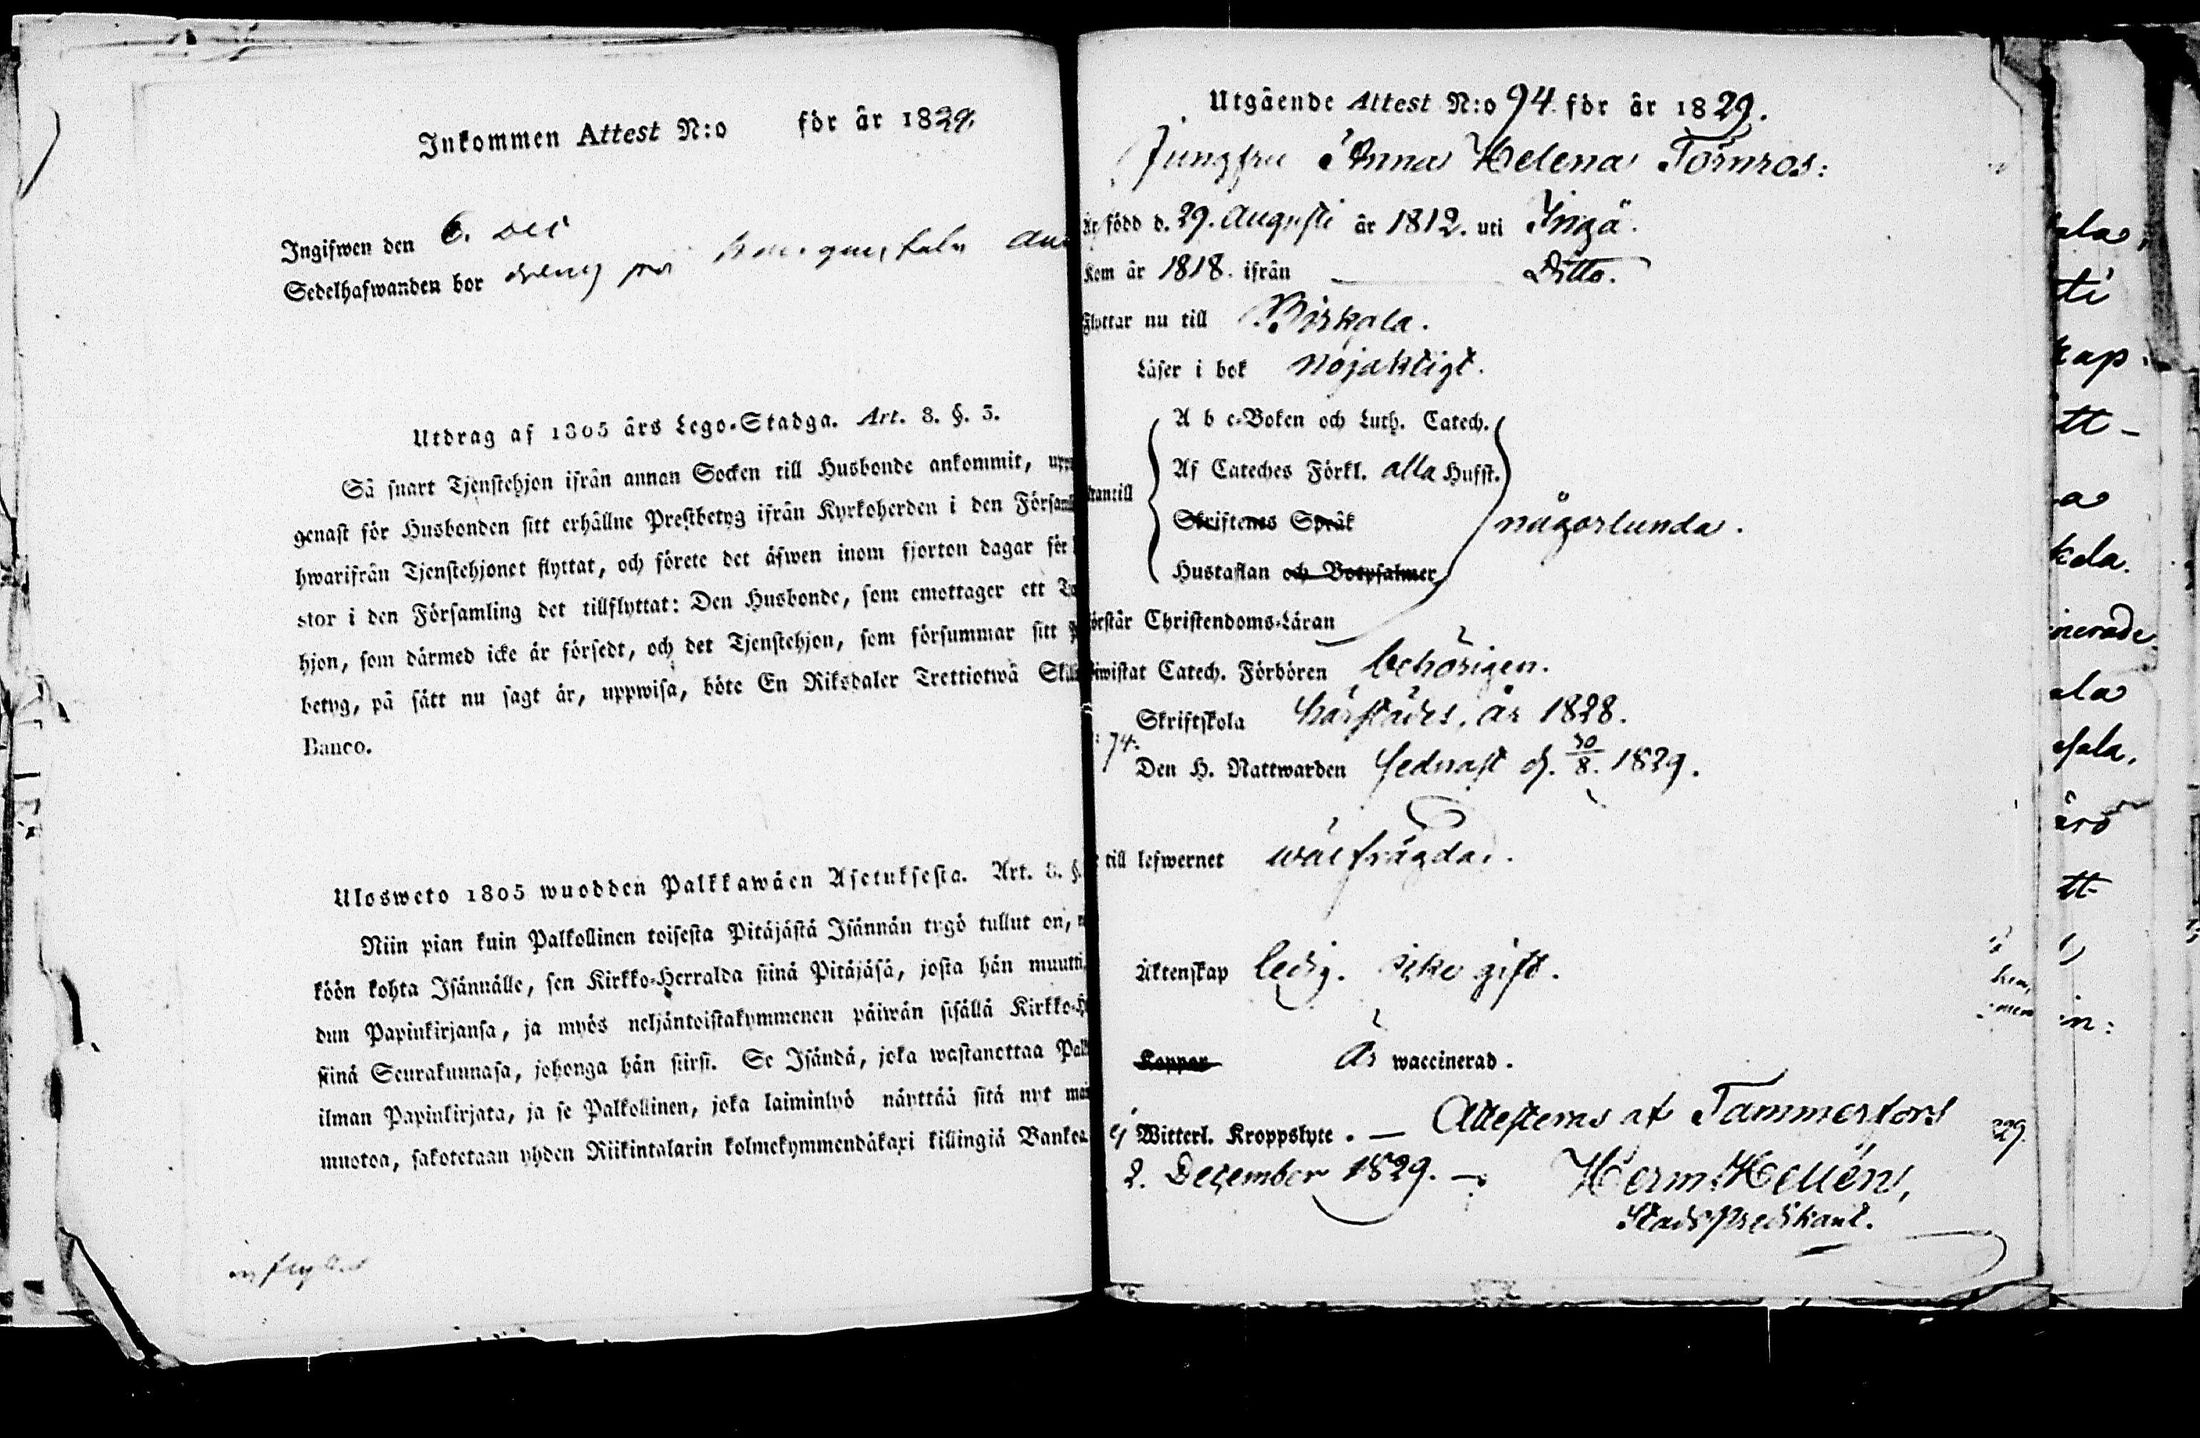 Inkommen Attest N:o för år 1829.
Ingifwen den 6. Dec
Sedelhafwanden bor på
Utdrag af 1805 års Lego-Stadga. Art. 8. §. 3.
Så snart Tjenstehjon ifrån annan Socken till Husbonde ankommit,
genast för Husbonden sitt erhållne Prestbetyg ifrån Kyrkoherden i den
hwarifrån Tjenstehjonet flyttat, och förete det äfwen inom fjorton dagar för
stor i den Församling det tillflyttat: Den Husbonde, som emottager ett
hjon, som därmed icke är försedt, och det Tjenstehjon, som försummar sitt
betyg, på sätt nu sagt är, uppwisa, böte En Riksdaler Trettiotwå
Banco.
Ulosweto 1805 wuodden Palkkawäen Asetuksesta. Art. 8. §.
Niin pian kuin Palkollinen toisesta Pitäjästä Isännän tygö tullut on,
köön kohta Isännälle, sen Kirkko-Herralda siinä Pitäjäsä, josta hän muutti,
dun Papinkirjansa, ja myös neljäntoistakymmenen päiwän sisällä
siinä Seurakunnasa, johonga hän siirsi. Se Isändä, joka wastanottaa
ilman Papinkirjata, ja se Palkollinen, joka laiminlyö näyttää sitä nyt
muotoa, sakotetaan yhden Riikintalarin kolmekymmendäkaxi killingiä
Utgående Attest N:o 94 för år 1829.
Jungfru Anna Helena Törnros:
Är född d. 29. Augusti år 1812. uti Ingå.
Kom år 1818. ifrån Ditto.
Flyttar nu till Birkala.
Läser i bok nöjaktigt.
A b c-Boken och Luth. Catech.
Af Cateches Förkl. alla Hufst.
Skriftens Språk någorlunda.
Hustaflan och Botpsalmer
Christendoms-Läran
Catech. Förhören behörigen.
Skriftskola härstädes, år 1828.
74. Den H. Nattwarden sednast d. 30/8. 1829.
till lefwernet wälfrägdad.
Äktenskap ledig. icke gift.
Koppor Är waccinerad.
ej Witterl. Kroppslyte. — Attesteras af Tammerfors
2. December 1829. — Herm: Hellén,
Stads Predikant.